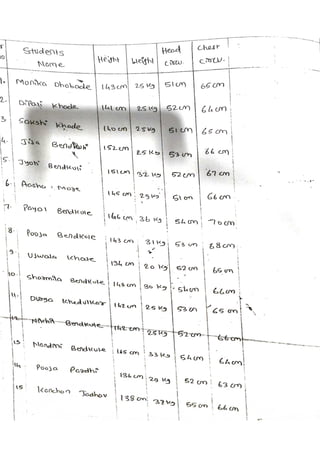 Students Name Height Weight Head circu. Chest circu.
1. Monika Dhobade 143cm 25 kg 51cm 65cm
2. Dipali Khade 141 cm 25 kg 52cm 64cm
3 Sakshi Khade 140 cm 25kg 51 cm 65 cm
4. Jija 152cm 25 kg 53 cm 64 cm
5. Jyoti 151cm 32 kg 52cm 67 cm
6. 145 cm 29kg 51 cm 66cm
7. Payal Bendkule 146 cm 36 kg 54 cm 70 cm
8. Pooja Bendkule 143 cm 31 kg 53 cm 68cm
9. Ujwala 134 cm 20 kg 52cm 65cm
10. Bendkule 143 cm 30 kg 54cm 66cm
11. Durga 142 cm 53 cm 65 cm
12. Bendkule 142 cm 25kg 52cm 66cm
13. Nandini Bendkule 145 cm 33 kg 54cm 64cm
14. Pooja Pardhi 136 cm 29 kg 52 cm 63 cm
15. Kanchan Jadhav 138 cm 37 kg 55 cm 66 cm